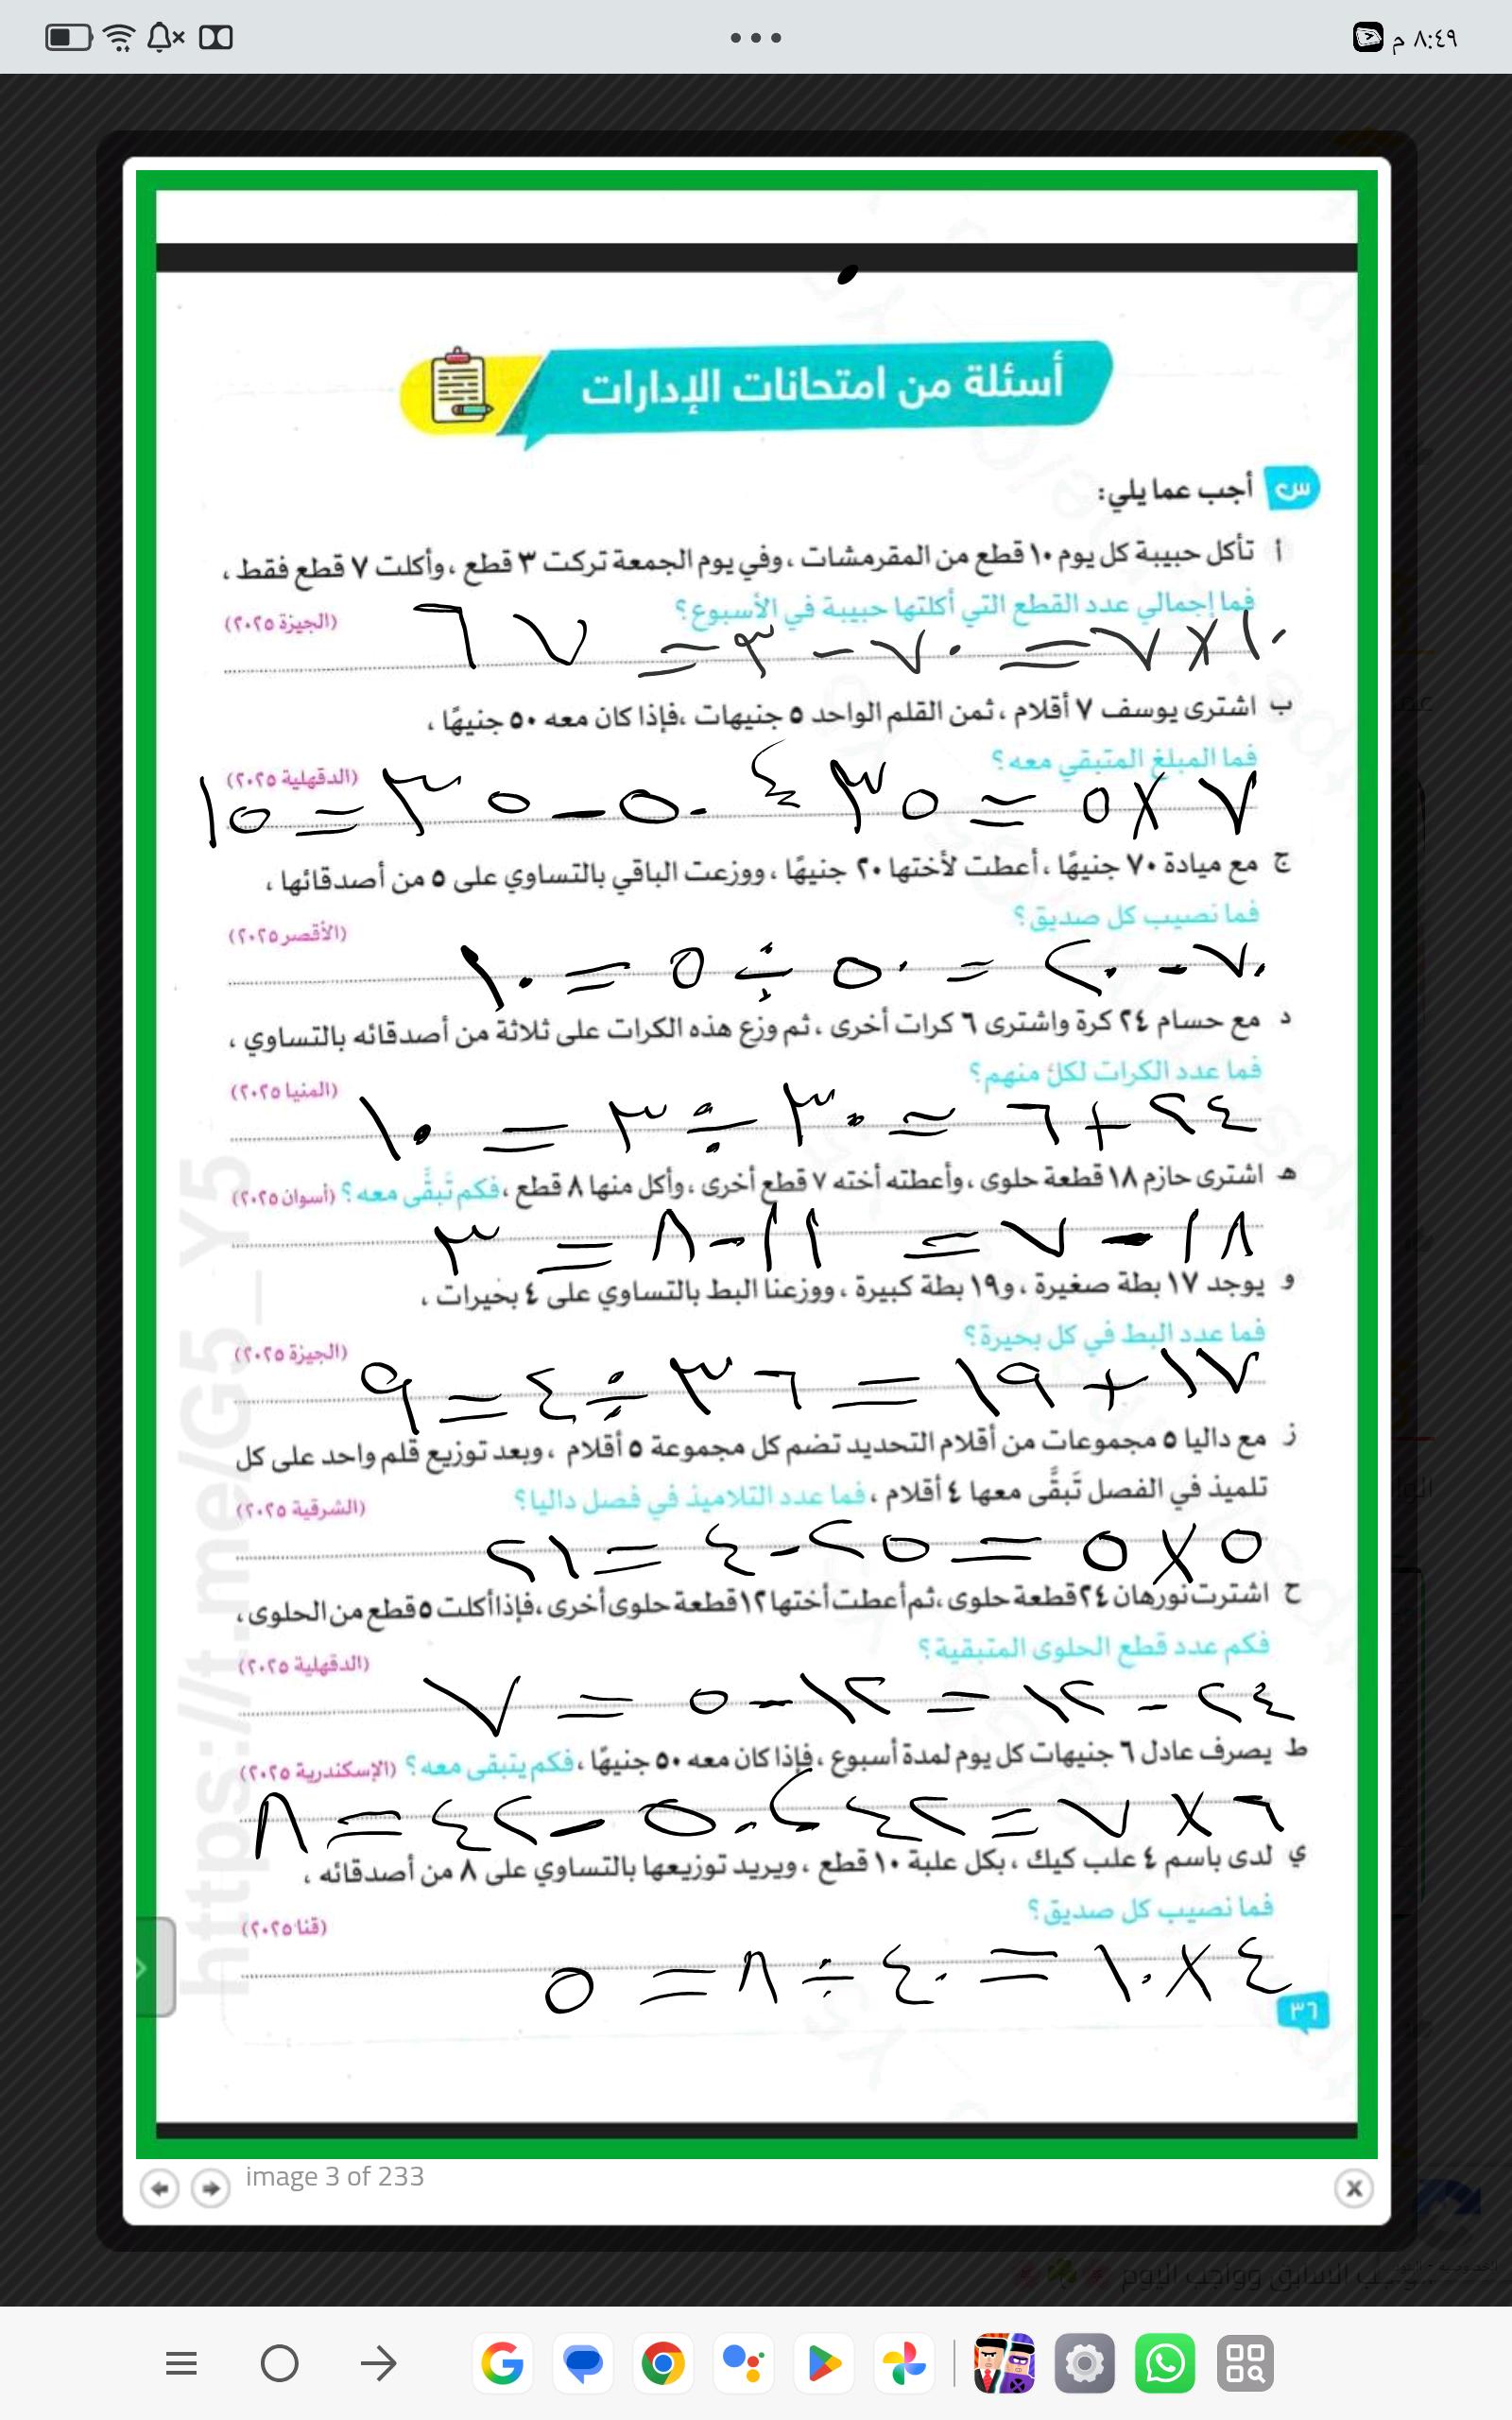 ٨:٤٩ م
أسئلة من امتحانات الإدارات
س أجب عما يلي:
أ تأكل حبيبة كل يوم ١٠ قطع من المقرمشات ، وفي يوم الجمعة تركت ٣ قطع ، وأكلت ٧ قطع فقط ،
فما إجمالي عدد القطع التي أكلتها حبيبة في الأسبوع؟ (الجيزة ٢٠٢٥)
١٠ × ٧ = ٧٠ − ٣ = ٦٧
ب اشترى يوسف ٧ أقلام ، ثمن القلم الواحد ٥ جنيهات ،فإذا كان معه ٥٠ جنيهًا ،
فما المبلغ المتبقي معه؟ (الدقهلية ٢٠٢٥)
٧ × ٥ = ٣٥ ٥٠ − ٣٥ = ١٥
ج مع ميادة ٧٠ جنيهًا ، أعطت لأختها ٢٠ جنيهًا ، ووزعت الباقي بالتساوي على ٥ من أصدقائها ،
فما نصيب كل صديق؟ (الأقصر ٢٠٢٥)
٧٠ − ٢٠ = ٥٠ ÷ ٥ = ١٠
د مع حسام ٢٤ كرة واشترى ٦ كرات أخرى ، ثم وزع هذه الكرات على ثلاثة من أصدقائه بالتساوي ،
فما عدد الكرات لكل منهم؟ (المنيا ٢٠٢٥)
٢٤ + ٦ = ٣٠ ÷ ٣ = ١٠
هـ اشترى حازم ١٨ قطعة حلوى ، وأعطته أخته ٧ قطع أخرى ، وأكل منها ٨ قطع ، فكم تَبقَّى معه؟ (أسوان ٢٠٢٥)
١٨ − ٧ = ١١ − ٨ = ٣
و يوجد ١٧ بطة صغيرة ، و١٩ بطة كبيرة ، ووزعنا البط بالتساوي على ٤ بحيرات ،
فما عدد البط في كل بحيرة؟ (الجيزة ٢٠٢٥)
١٧ + ١٩ = ٣٦ ÷ ٤ = ٩
ز مع داليا ٥ مجموعات من أقلام التحديد تضم كل مجموعة ٥ أقلام ، وبعد توزيع قلم واحد على كل
تلميذ في الفصل تَبقَّى معها ٤ أقلام ، فما عدد التلاميذ في فصل داليا؟ (الشرقية ٢٠٢٥)
٥ × ٥ = ٢٥ − ٤ = ٢١
ح اشترت نورهان ٢٤ قطعة حلوى ،ثم أعطت أختها ١٢ قطعة حلوى أخرى ،فإذا أكلت ٥ قطع من الحلوى ،
فكم عدد قطع الحلوى المتبقية؟ (الدقهلية ٢٠٢٥)
٢٤ − ١٢ = ١٢ − ٥ = ٧
ط يصرف عادل ٦ جنيهات كل يوم لمدة أسبوع ، فإذا كان معه ٥٠ جنيهًا ، فكم يتبقى معه؟ (الإسكندرية ٢٠٢٥)
٦ × ٧ = ٤٢ ٥٠ − ٤٢ = ٨
ي لدى باسم ٤ علب كيك ، بكل علبة ١٠ قطع ، ويريد توزيعها بالتساوي على ٨ من أصدقائه ،
فما نصيب كل صديق؟ (قنا ٢٠٢٥)
٤ × ١٠ = ٤٠ ÷ ٨ = ٥
٣٦
https://t.me/G5_Y5
image 3 of 233
السابق وواجب اليوم